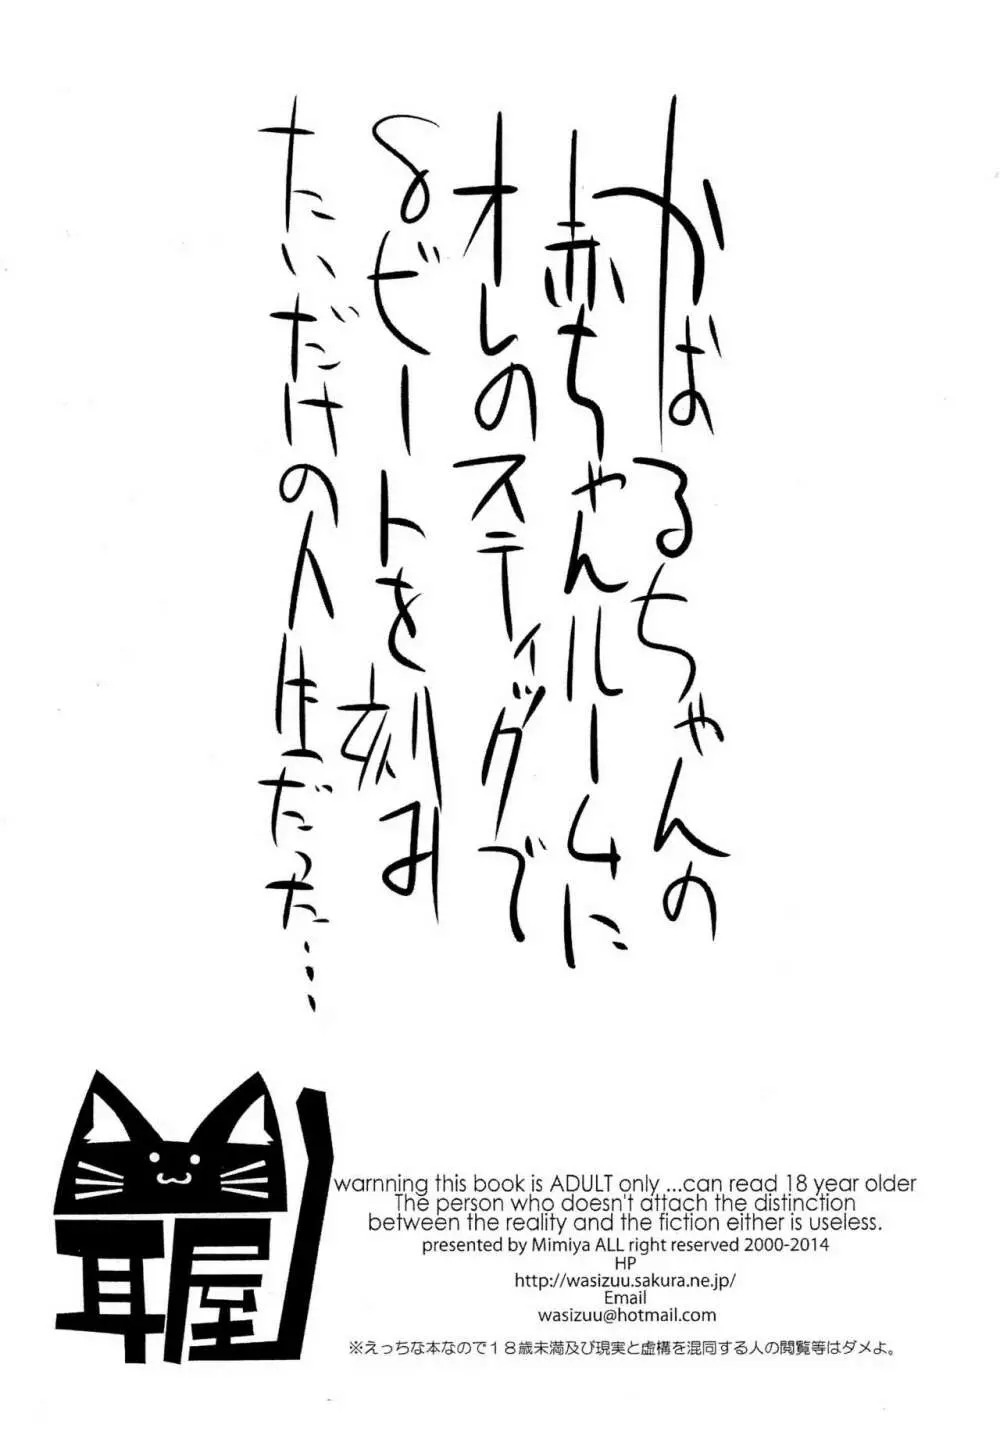 かおるちゃんの
赤ちゃんルームに
オレのスティックで
8ビートを刻み
たいだけの人生だった…
耳屋
warnning this book is ADULT only ...can read 18 year older
The person who doesn't attach the distinction
between the reality and the fiction either is useless.
presented by Mimiya ALL right reserved 2000-2014
HP
http://wasizuu.sakura.ne.jp/
Email
wasizuu@hotmail.com
※えっちな本なので１８歳未満及び現実と虚構を混同する人の閲覧等はダメよ。